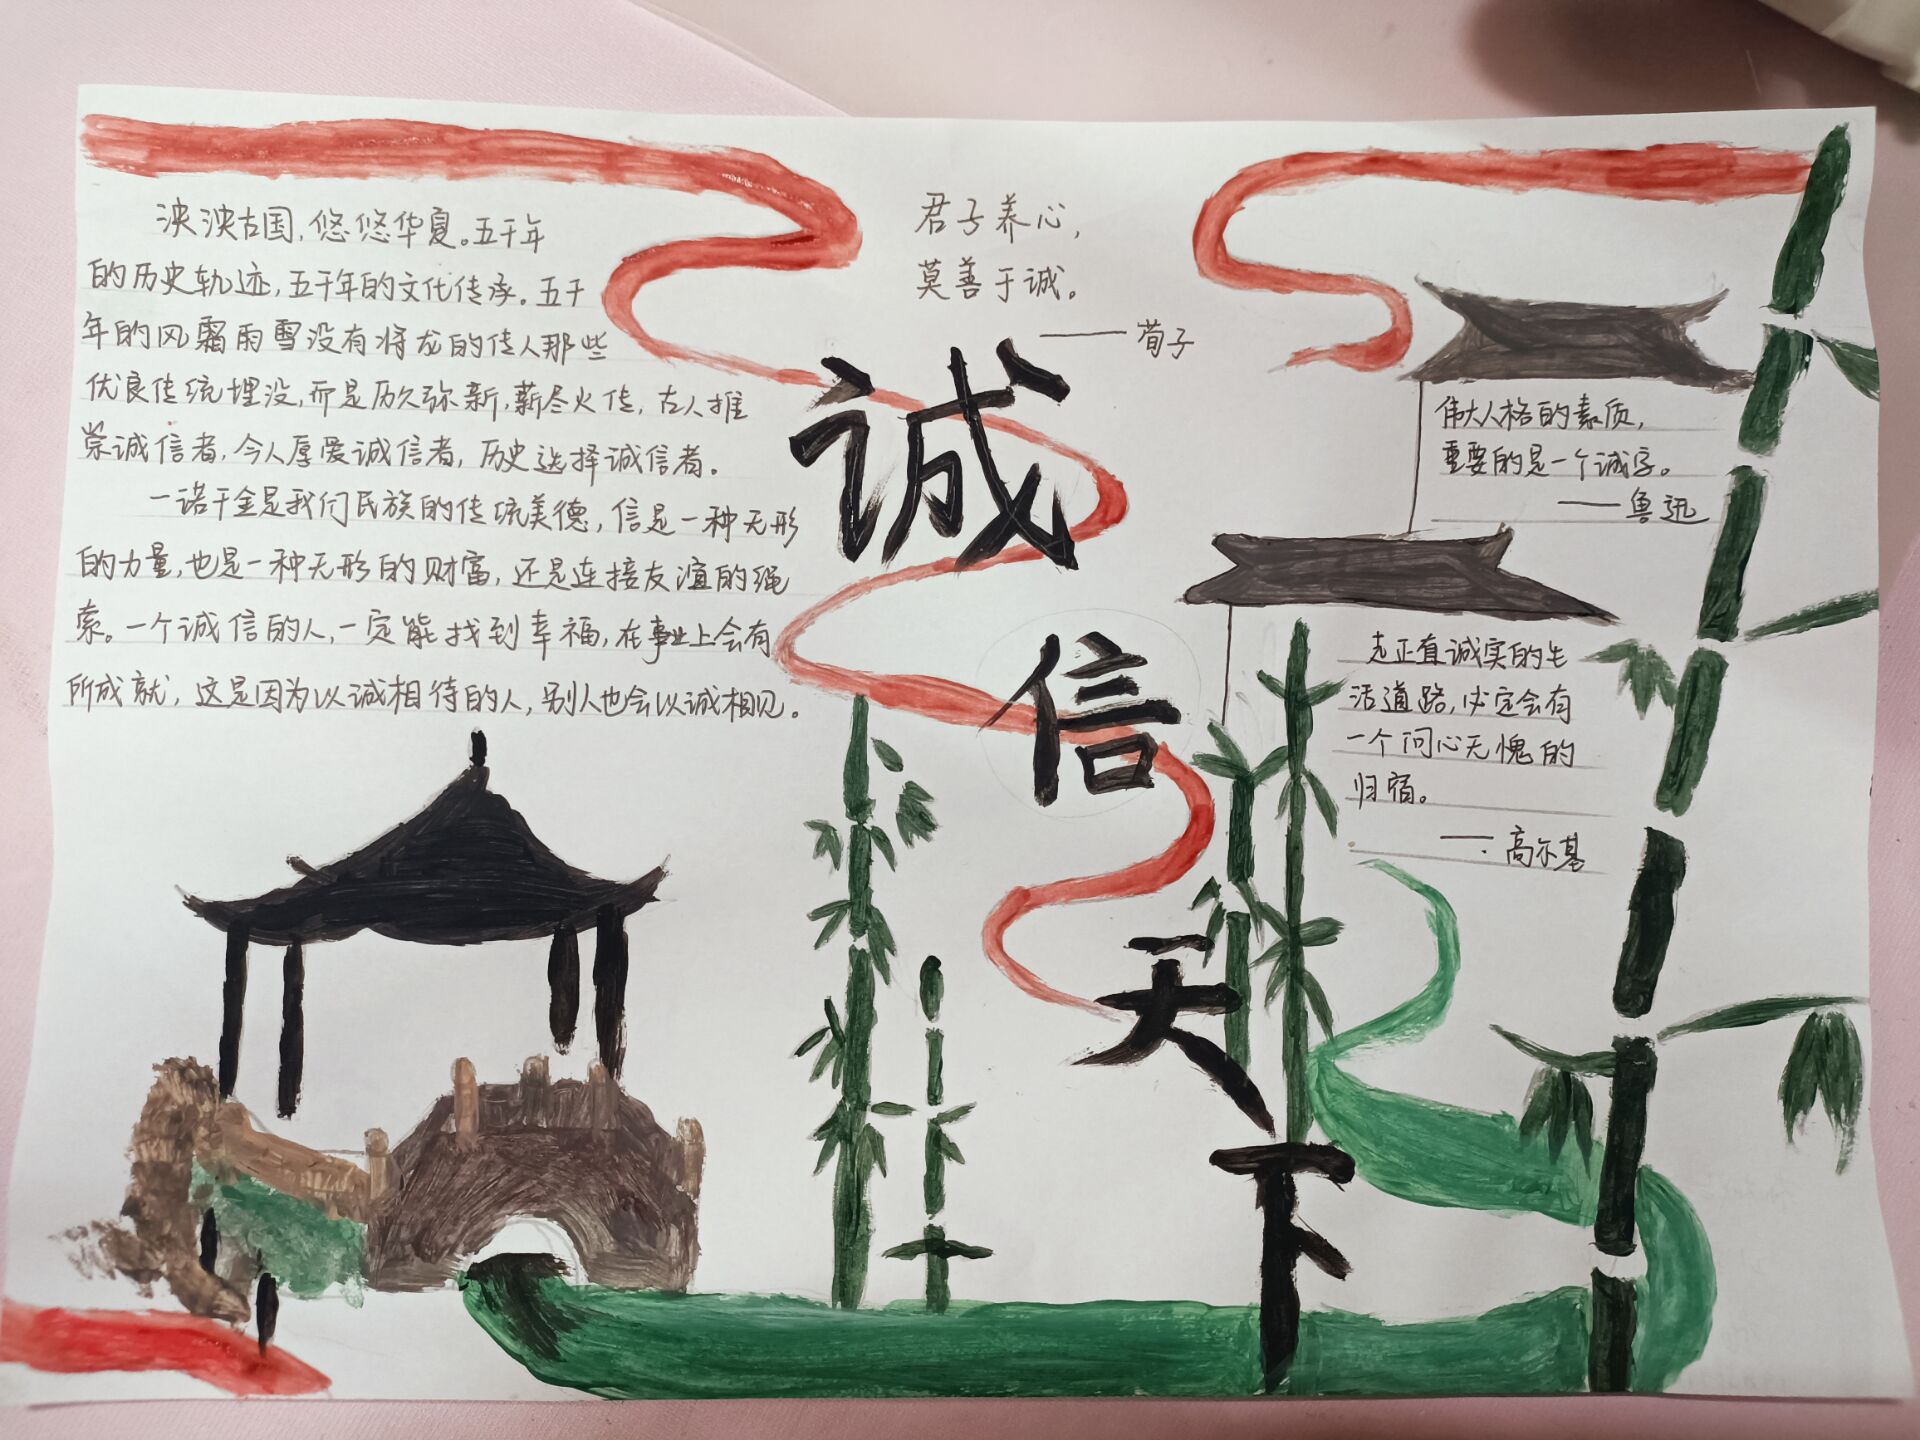 泱泱古国,悠悠华夏。五千年
的历史轨迹,五千年的文化传承。五千
年的风霜雨雪没有将龙的传人那些
优良传统埋没,而是历久弥新,薪尽火传,古人推
崇诚信者,今人厚爱诚信者,历史选择诚信者。
一诺千金是我们民族的传统美德,信是一种无形
的力量,也是一种无形的财富,还是连接友谊的绳
索。一个诚信的人,一定能找到幸福,在事业上会有
所成就,这是因为以诚相待的人,别人也会以诚相见。
君子养心,
莫善于诚。
——荀子
诚
信
天
下
伟大人格的素质,
重要的是一个诚字。
——鲁迅
走正直诚实的生
活道路,必定会有
一个问心无愧的
归宿。
——高尔基